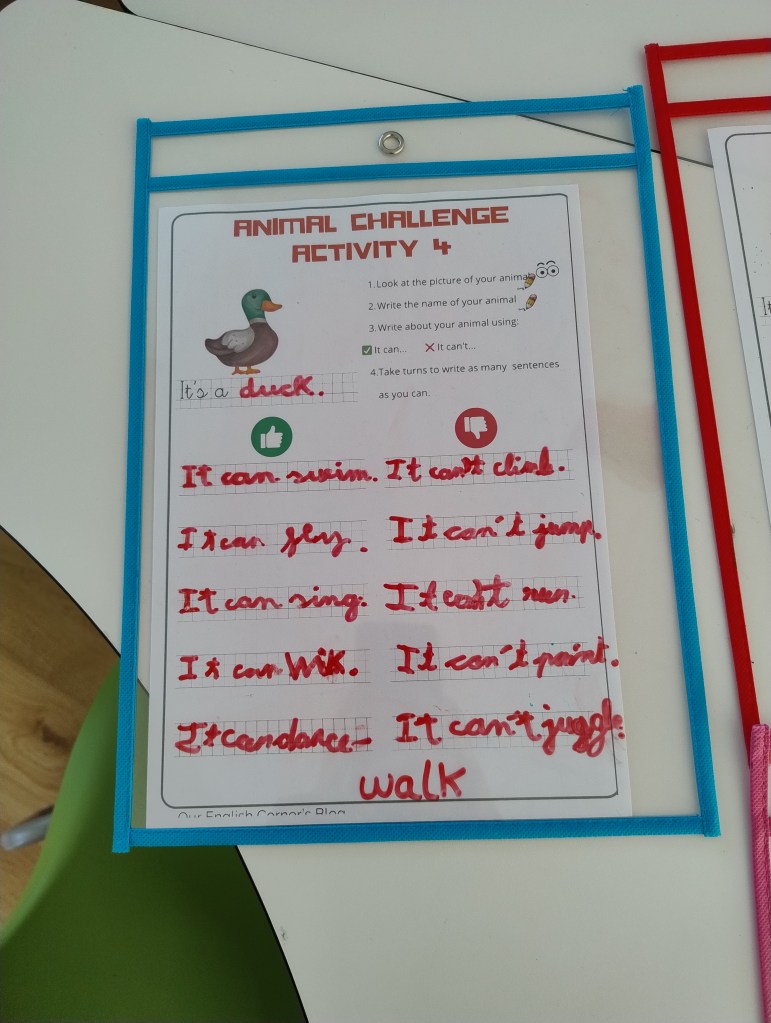 ANIMAL CHALLENGE
ACTIVITY 4
1. Look at the picture of your animal
2. Write the name of your animal
3. Write about your animal using:
It can... It can't...
4. Take turns to write as many sentences
as you can.
It's a duck.
It can swim. It can't climb.
It can fly. It can't jump.
It can sing. It can't run.
It can Wik. It can't paint.
It can dance It can't juggle.
walk
Our English Corner's Blog